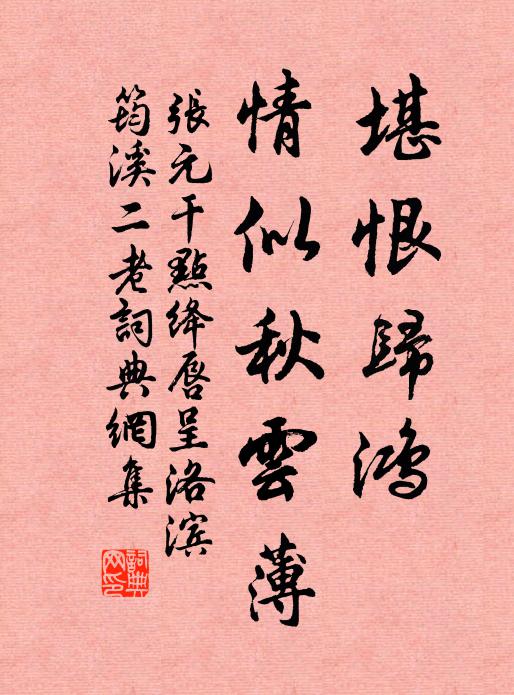 堪恨歸鴻
情似秋雲薄
張元干點絳唇呈洛滨
筠溪二老詞典網集
詞典网印